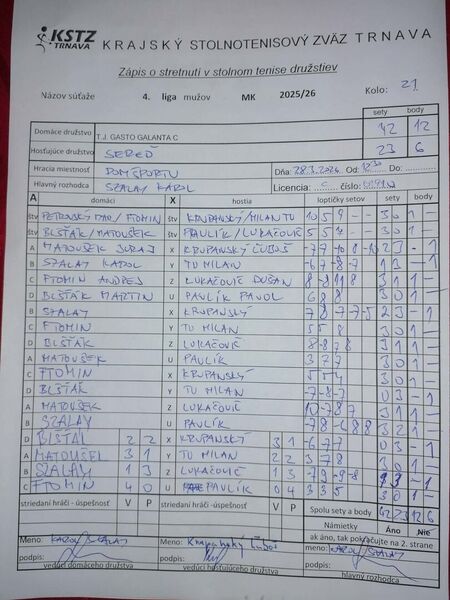 KSTZ
TRNAVA
KRAJSKÝ STOLNOTENISOVÝ ZVÄZ TRNAVA
Zápis o stretnutí v stolnom tenise družstiev
Názov súťaže 4. liga mužov MK 2025/26 Kolo: 21
sety body
Domáce družstvo T.J. GASTO GALANTA C 42 12
Hosťujúce družstvo SEREĎ 23 6
Hracia miestnosť DOM ŠPORTU Dňa: Od: Do:
Hlavný rozhodca SZALAY KAROL Licencia číslo:
A domáci X hostia loptičky setov sety body
štv štv KRUPANSKÝ/MILAN TU 10 5 9 - - 3 0 1 -
štv BLŠŤÁK/MATOUŠEK štv PAVLÍK/LUKAČOVIČ 5 5 7 - - 3 0 1 -
A MATOUŠEK JURAJ X KRUPANSKÝ ĽUBOŠ 2 3 - 1
B SZALAY KAROL Y TU MILAN -6 7 -8 -7 1 3 - 1
C FTOMIN ANDREJ Z LUKAČOVIČ DUŠAN 3 1 1 -
D BLŠŤÁK MARTIN U PAVLÍK PAVOL 6 8 8 3 0 1 -
B SZALAY X KRUPANSKÝ 2 3 - 1
C FTOMIN Y TU MILAN 5 5 8 3 0 1 -
D BLŠŤÁK Z LUKAČOVIČ 3 1 1 -
A MATOUŠEK U PAVLÍK 3 7 7 3 0 1 -
C FTOMIN X KRUPANSKÝ 5 5 4 3 0 1 -
D BLŠŤÁK Y TU MILAN -7 -8 -7 0 3 - 1
A MATOUŠEK Z LUKAČOVIČ 10 -7 8 7 3 1 1 -
B SZALAY U PAVLÍK 3 2 1 -
D 2 2 X KRUPANSKÝ 3 1 -6 -7 -7 0 3 - 1
A 3 1 Y TU MILAN 2 2 3 7 8 3 0 1 -
B SZALAY 1 3 Z LUKAČOVIČ 1 3 -7 9 -9 -8 - 1
C FTOMIN 4 0 U PAVLÍK 0 4 3 3 5 3 0 1 -
striedaní hráči - úspešnosť V P striedaní hráči - úspešnosť V P Spolu sety a body 42 23 12 6
Námietky Áno Nie
ak áno, tak pokračujte na 2. strane
Meno: KAROL SZALAY Meno: Krupanský Ľuboš meno: KAROL SZALAY
podpis: podpis: podpis:
vedúci domáceho družstva vedúci hosťujúceho družstva hlavný rozhodca